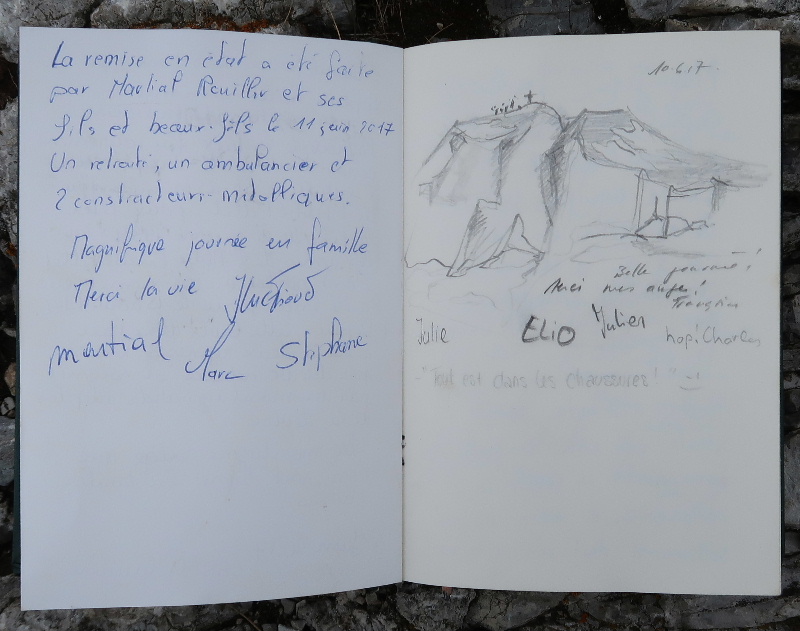 La remise en état a été faite
par Martial Reuiller et ses
fils et beaux-fils le 11 juin 2017
Un retraité, un ambulancier et
2 constructeurs métalliques.
Magnifique journée en famille
Merci la vie
martial Marc Stéphane
10.6.17.
Belle journée!
Merci mes anges!
Françoise
Julie ELIO Julien hop! Charles
"Tout est dans les chaussures!"